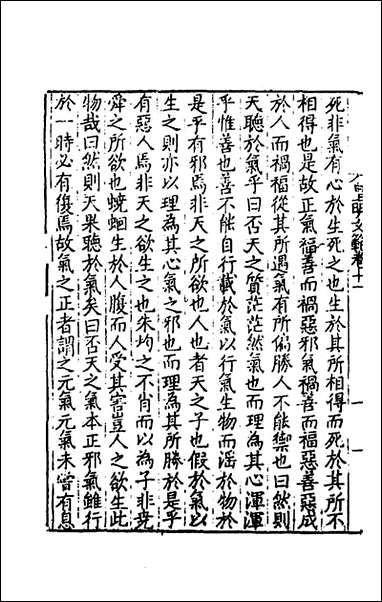 文衡卷十一
死非氣有心於生死之也生於其所相得而死於其所不
相得也是故正氣福善而禍惡邪氣禍善而福惡善惡成
於人而禍福從其所遇氣有所偏勝人不能禦也曰然則
天聽於氣乎曰否天之質茫茫然氣也而理為其心渾渾
乎惟善也善不能自行載於氣以行氣生物而淫於物於
是乎有邪焉非天之所欲也人也者天之子也假於氣以
生之則亦以理為其心氣之邪也而理為其所勝於是乎
有惡人焉非天之欲生之也朱均之不肖而以為子非堯
舜之所欲也蟯蛔生於人腹而人受其害豈人之欲生此
物哉曰然則天果聽於氣矣曰否天之氣本正邪氣雖行
於一時必有復焉故氣之正者謂之元氣元氣未嘗有息